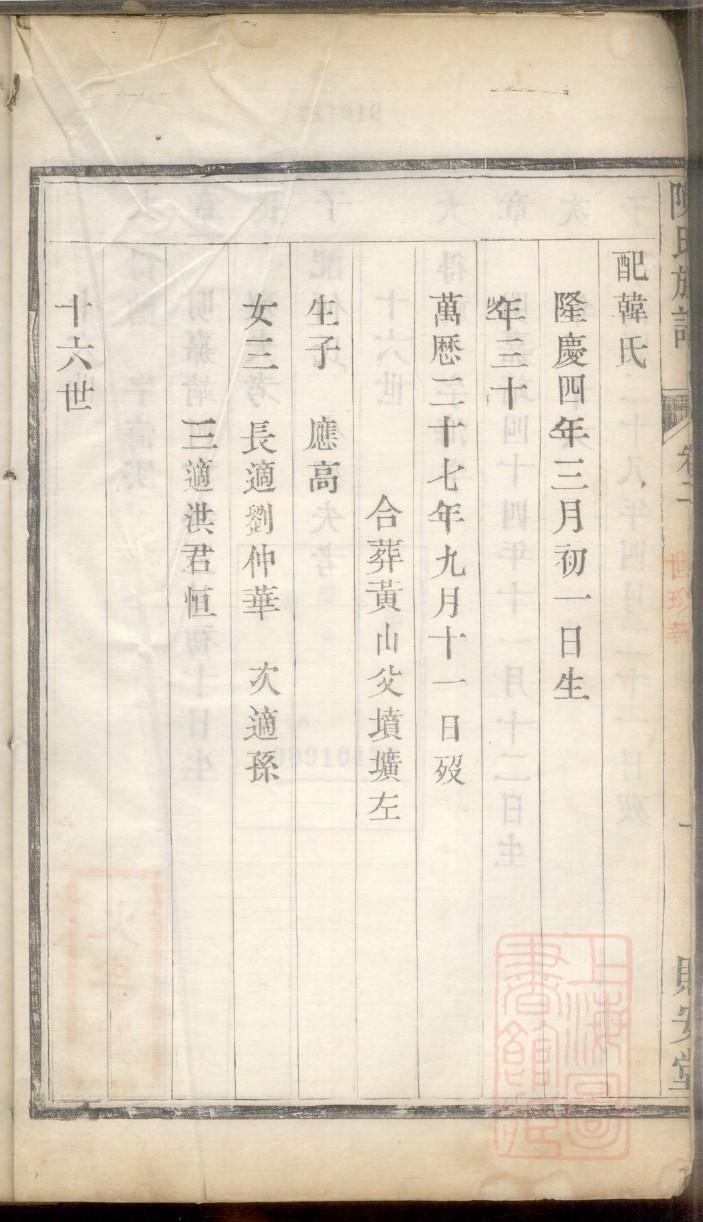 陳氏族譜
卷二
世珍集
一
賜安堂
配韓氏
隆慶四年三月初一日生
年三十
萬歷二十七年九月十一日歿
合葬黃山父墳壙左
生子 應高
女三 長適劉仲華 次適孫
三適洪君恒
十六世
上海圖
書館藏